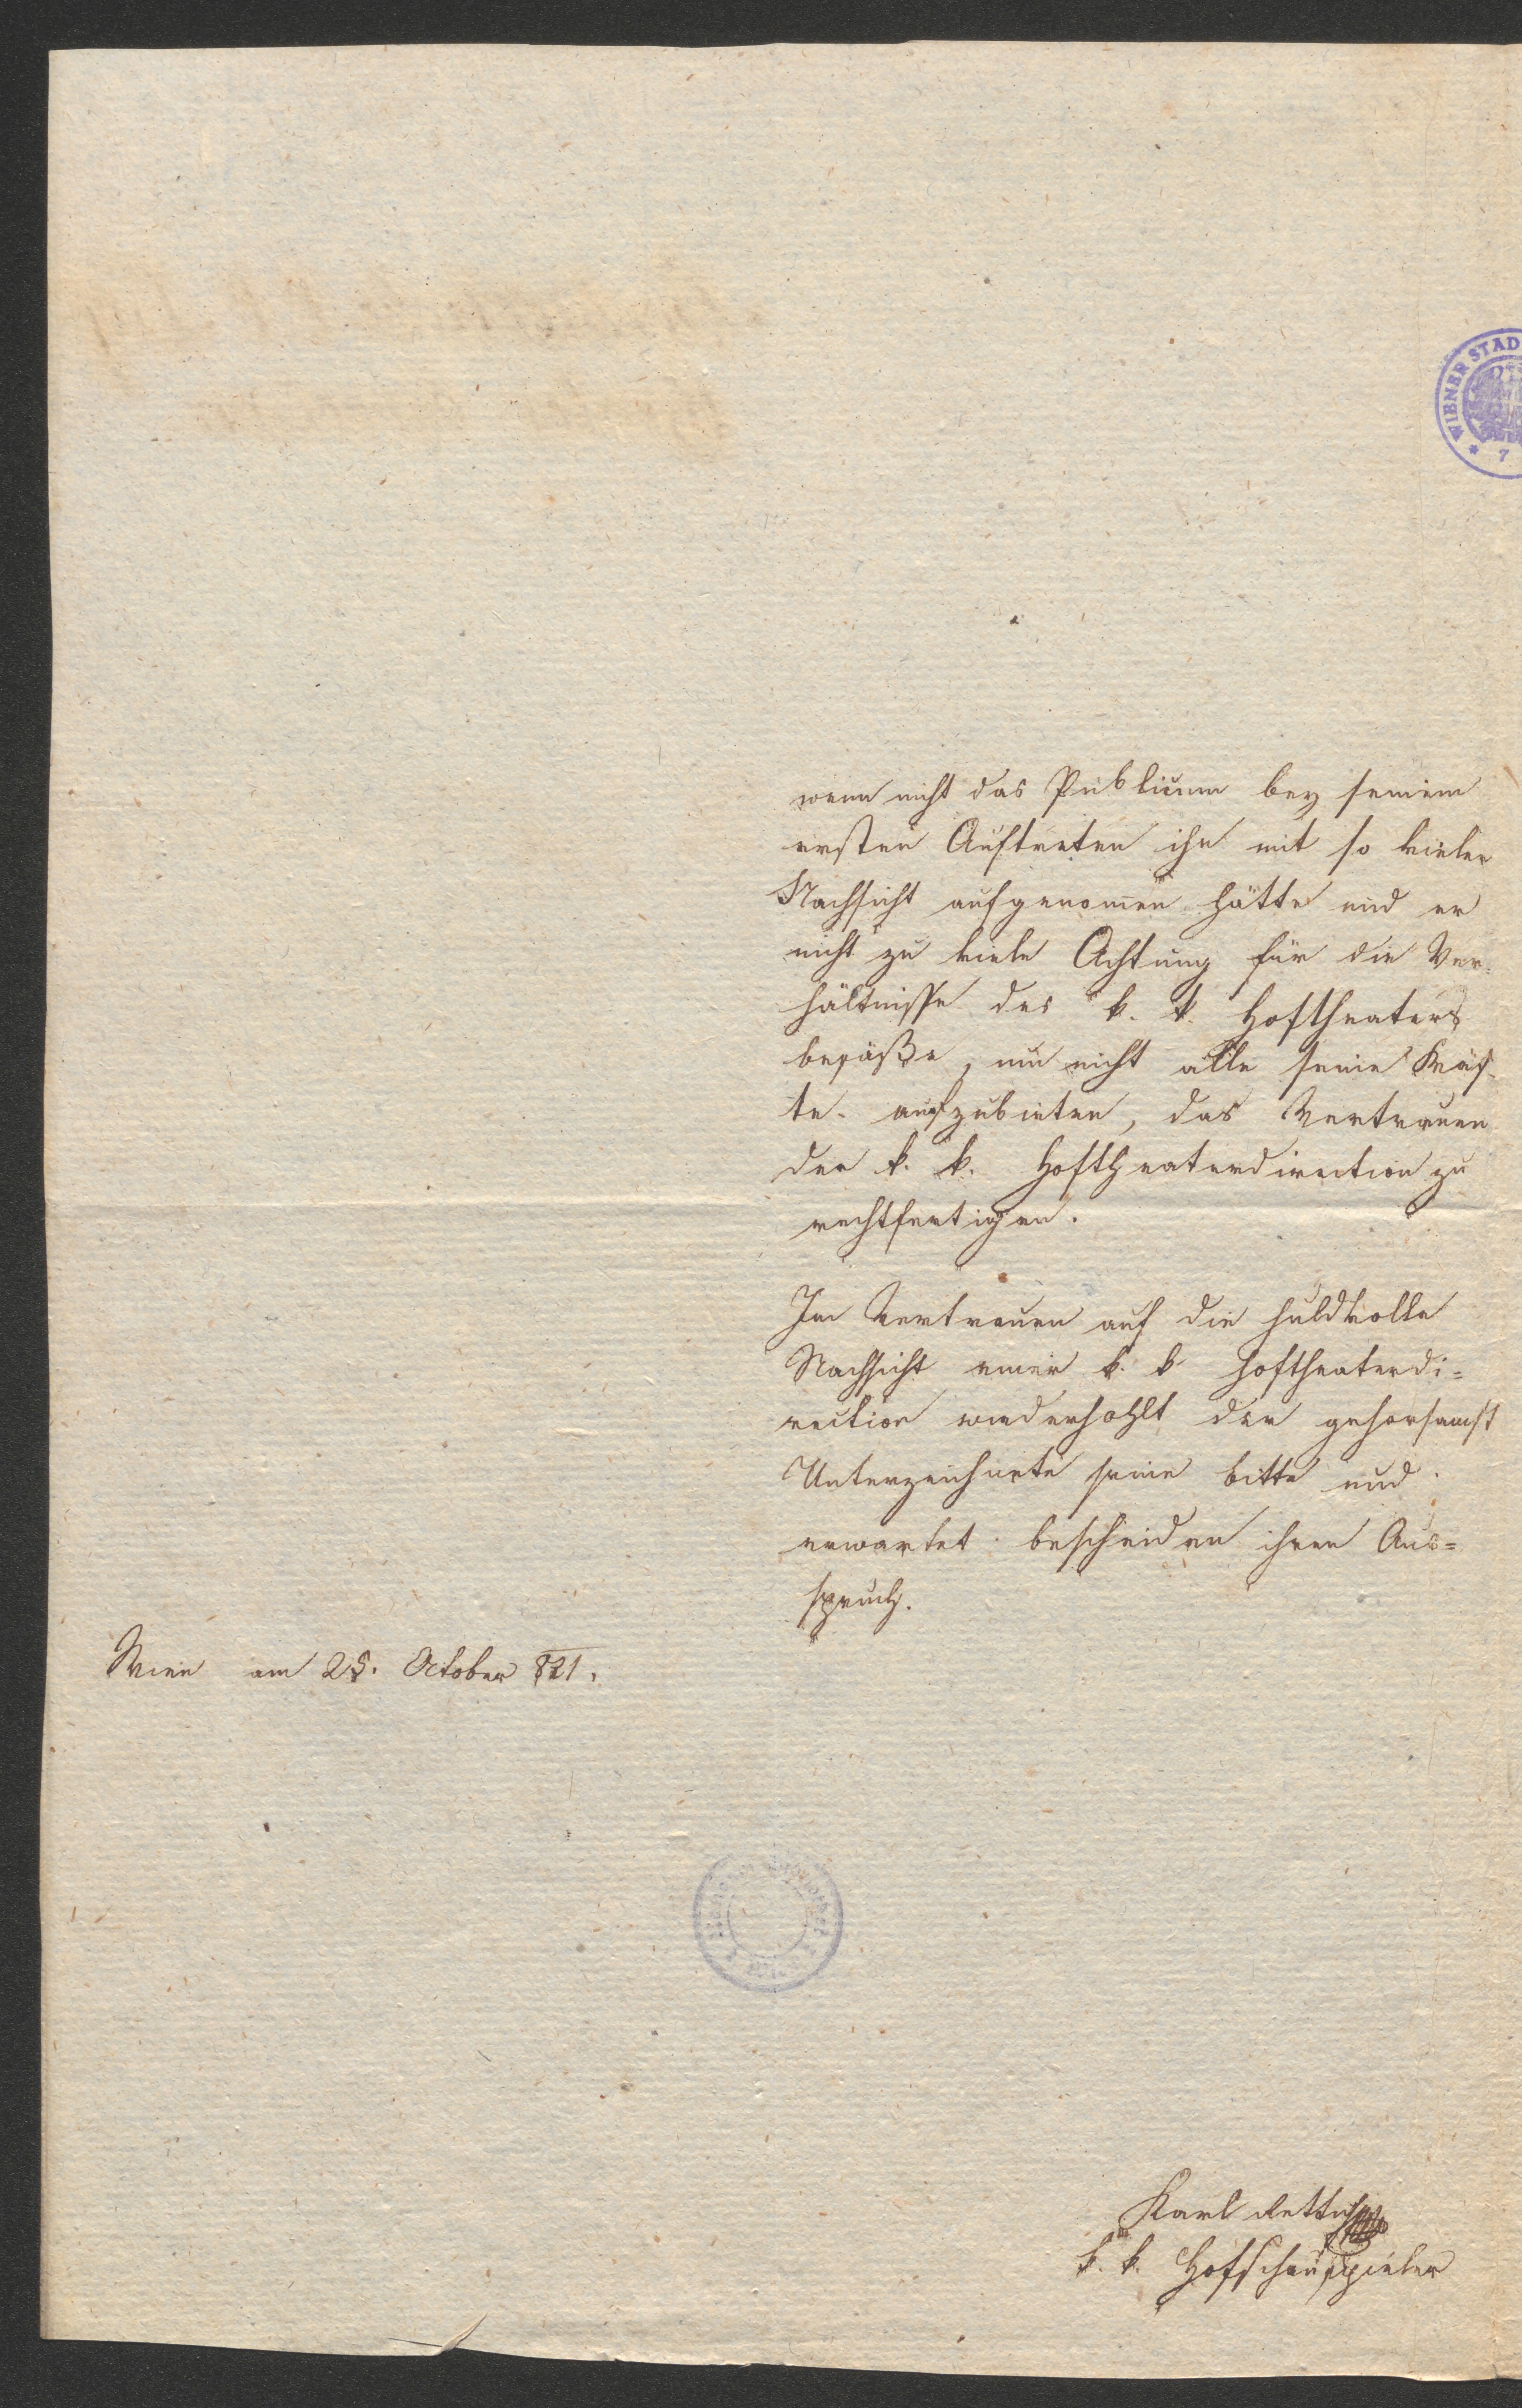 WIENER STAD
* 7
wenn nicht das Publicum bey seinem
ersten Auftreten ihn mit so vieler
Nachsicht aufgenom̅en hätte und er
nicht zu viele Achtung für die Ver-
hältnisse des k. k. Hoftheaters
besäße, um nicht alle seine Kräf-
te aufzubieten, das Vertrauen
der k. k. Hoftheaterdirection zu
rechtfertigen.
Im Vertrauen auf die huldvolle
Nachsicht einer k. k Hoftheaterdi=
rection wiederhohlt der gehorsamst
Unterzeichnete seine bitte und
erwartet bescheiden ihren Aus=
spruch.
Wien am 25. October 821.
Karl Rettich
k. k. Hofschauspieler